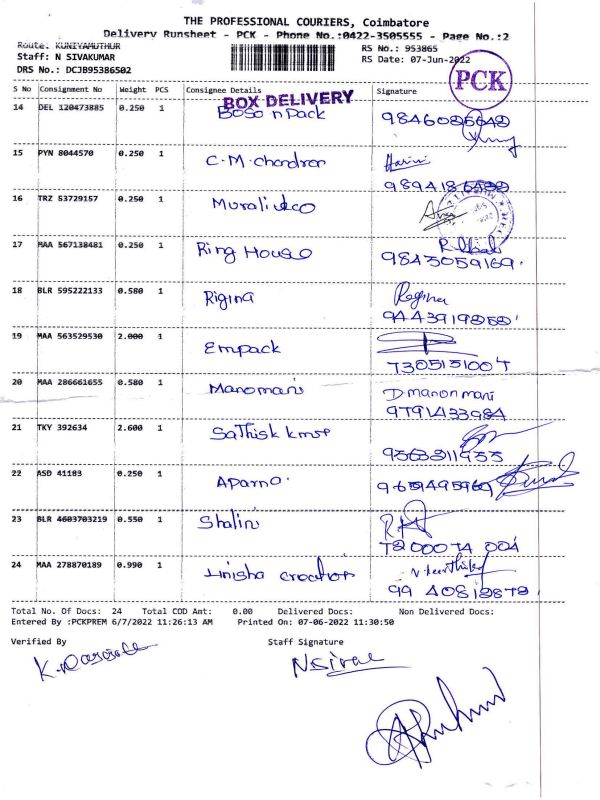 THE PROFESSIONAL COURIERS, Coimbatore
Delivery Runsheet - PCK - Phone No.:0422-3505555 - Page No.:2
Route: KUNIYAMUTHUR
RS No.: 953865
Staff: N SIVAKUMAR
RS Date: 07-Jun-2022
DRS No.: DCJB95386502
PCK
S No Consignment No Weight PCS Consignee Details Signature
BOX DELIVERY
14 DEL 120473885 0.250 1 Boso n pack
15 PYN 8044570 0.250 1 C.M. chandran Harini
16 TRZ 53729157 0.250 1
17 MAA 567138481 0.250 1 Ring House
9843059169.
18 BLR 595222133 0.580 1 Rigina Regina
9443919858
19 MAA 563529530 2.000 1 Empack
7305151007
20 MAA 286661655 0.580 1 Manomani D manonmani
9791433984
21 TKY 392634 2.600 1 Sathish kmsr
22 ASD 41183 0.250 1 Aparna
9659495969
23 BLR 4603703219 0.550 1 Shalini
7200074 004
24 MAA 278870189 0.990 1 Linisha creation
99 40812872
Total No. Of Docs: 24 Total COD Amt: 0.00 Delivered Docs: Non Delivered Docs:
Entered By :PCKPREM 6/7/2022 11:26:13 AM Printed On: 07-06-2022 11:30:50
Verified By Staff Signature